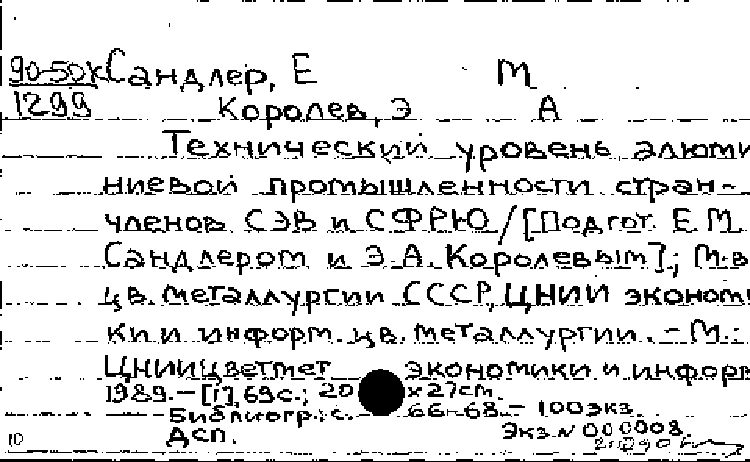 90-50к Сандлер, Е М
1299 Королев, Э А
Технический уровень алюми
ниевой промышленности стран-
членов СЭВ и СФРЮ / [Подгот. Е.М.
Сандлером и Э.А. Королевым]; М-в
цв. металлургии СССР, ЦНИИ эконом
ки и информ. цв. металлургии. - М.:
ЦНИИцветмет экономики и информ
1989. - [1], 69 с.; 20 х 27 см.
Библиогр.: с. 66-68. - 100 экз.
Дсп. Экз. № 000008.
10